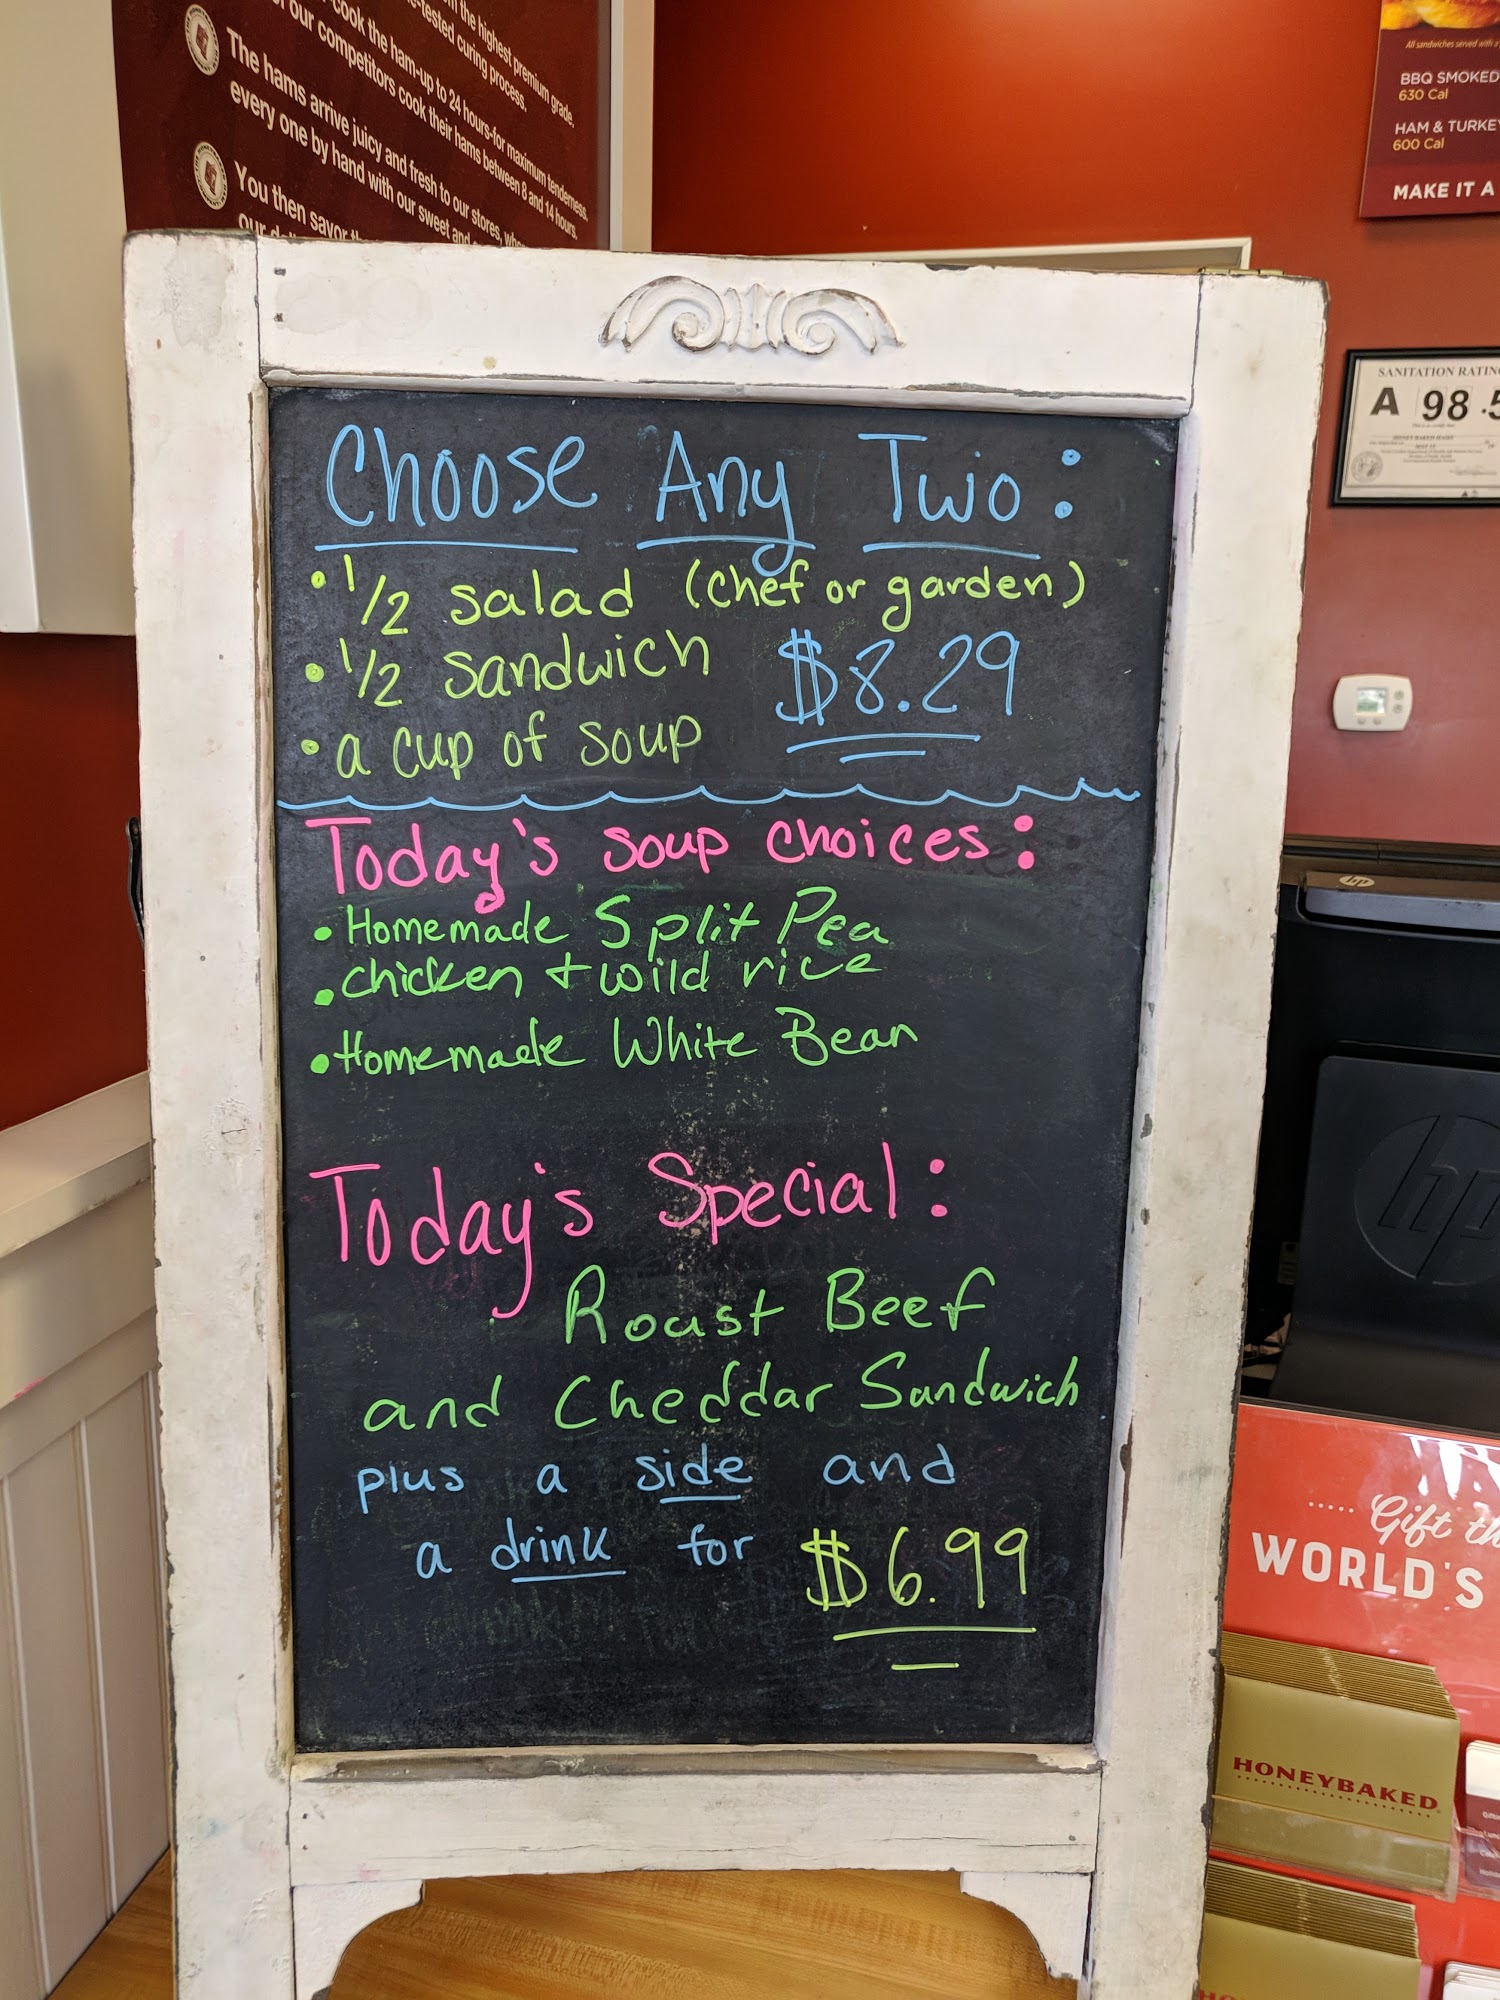 m the highest premium grade.
-tested curing process.
cook the ham-up to 24 hours-for maximum tenderness.
our competitors cook their hams between 8 and 14 hours.
The hams arrive juicy and fresh to our stores,
every one by hand with our sweet and
You then savor
our
All sandwiches served with a
BBQ SMOKED
630 Cal
HAM & TURKEY
600 Cal
MAKE IT A
SANITATION RATING
A 98.5
Choose Any Two:
• 1/2 salad (chef or garden)
• 1/2 sandwich $8.29
• a cup of soup
Today's soup choices:
• Homemade Split Pea
• chicken + wild rice
• Homemade White Bean
Today's Special:
Roast Beef
and Cheddar Sandwich
plus a side and
a drink for $6.99
hp
hp
Gift th
WORLD'S
HONEYBAKED